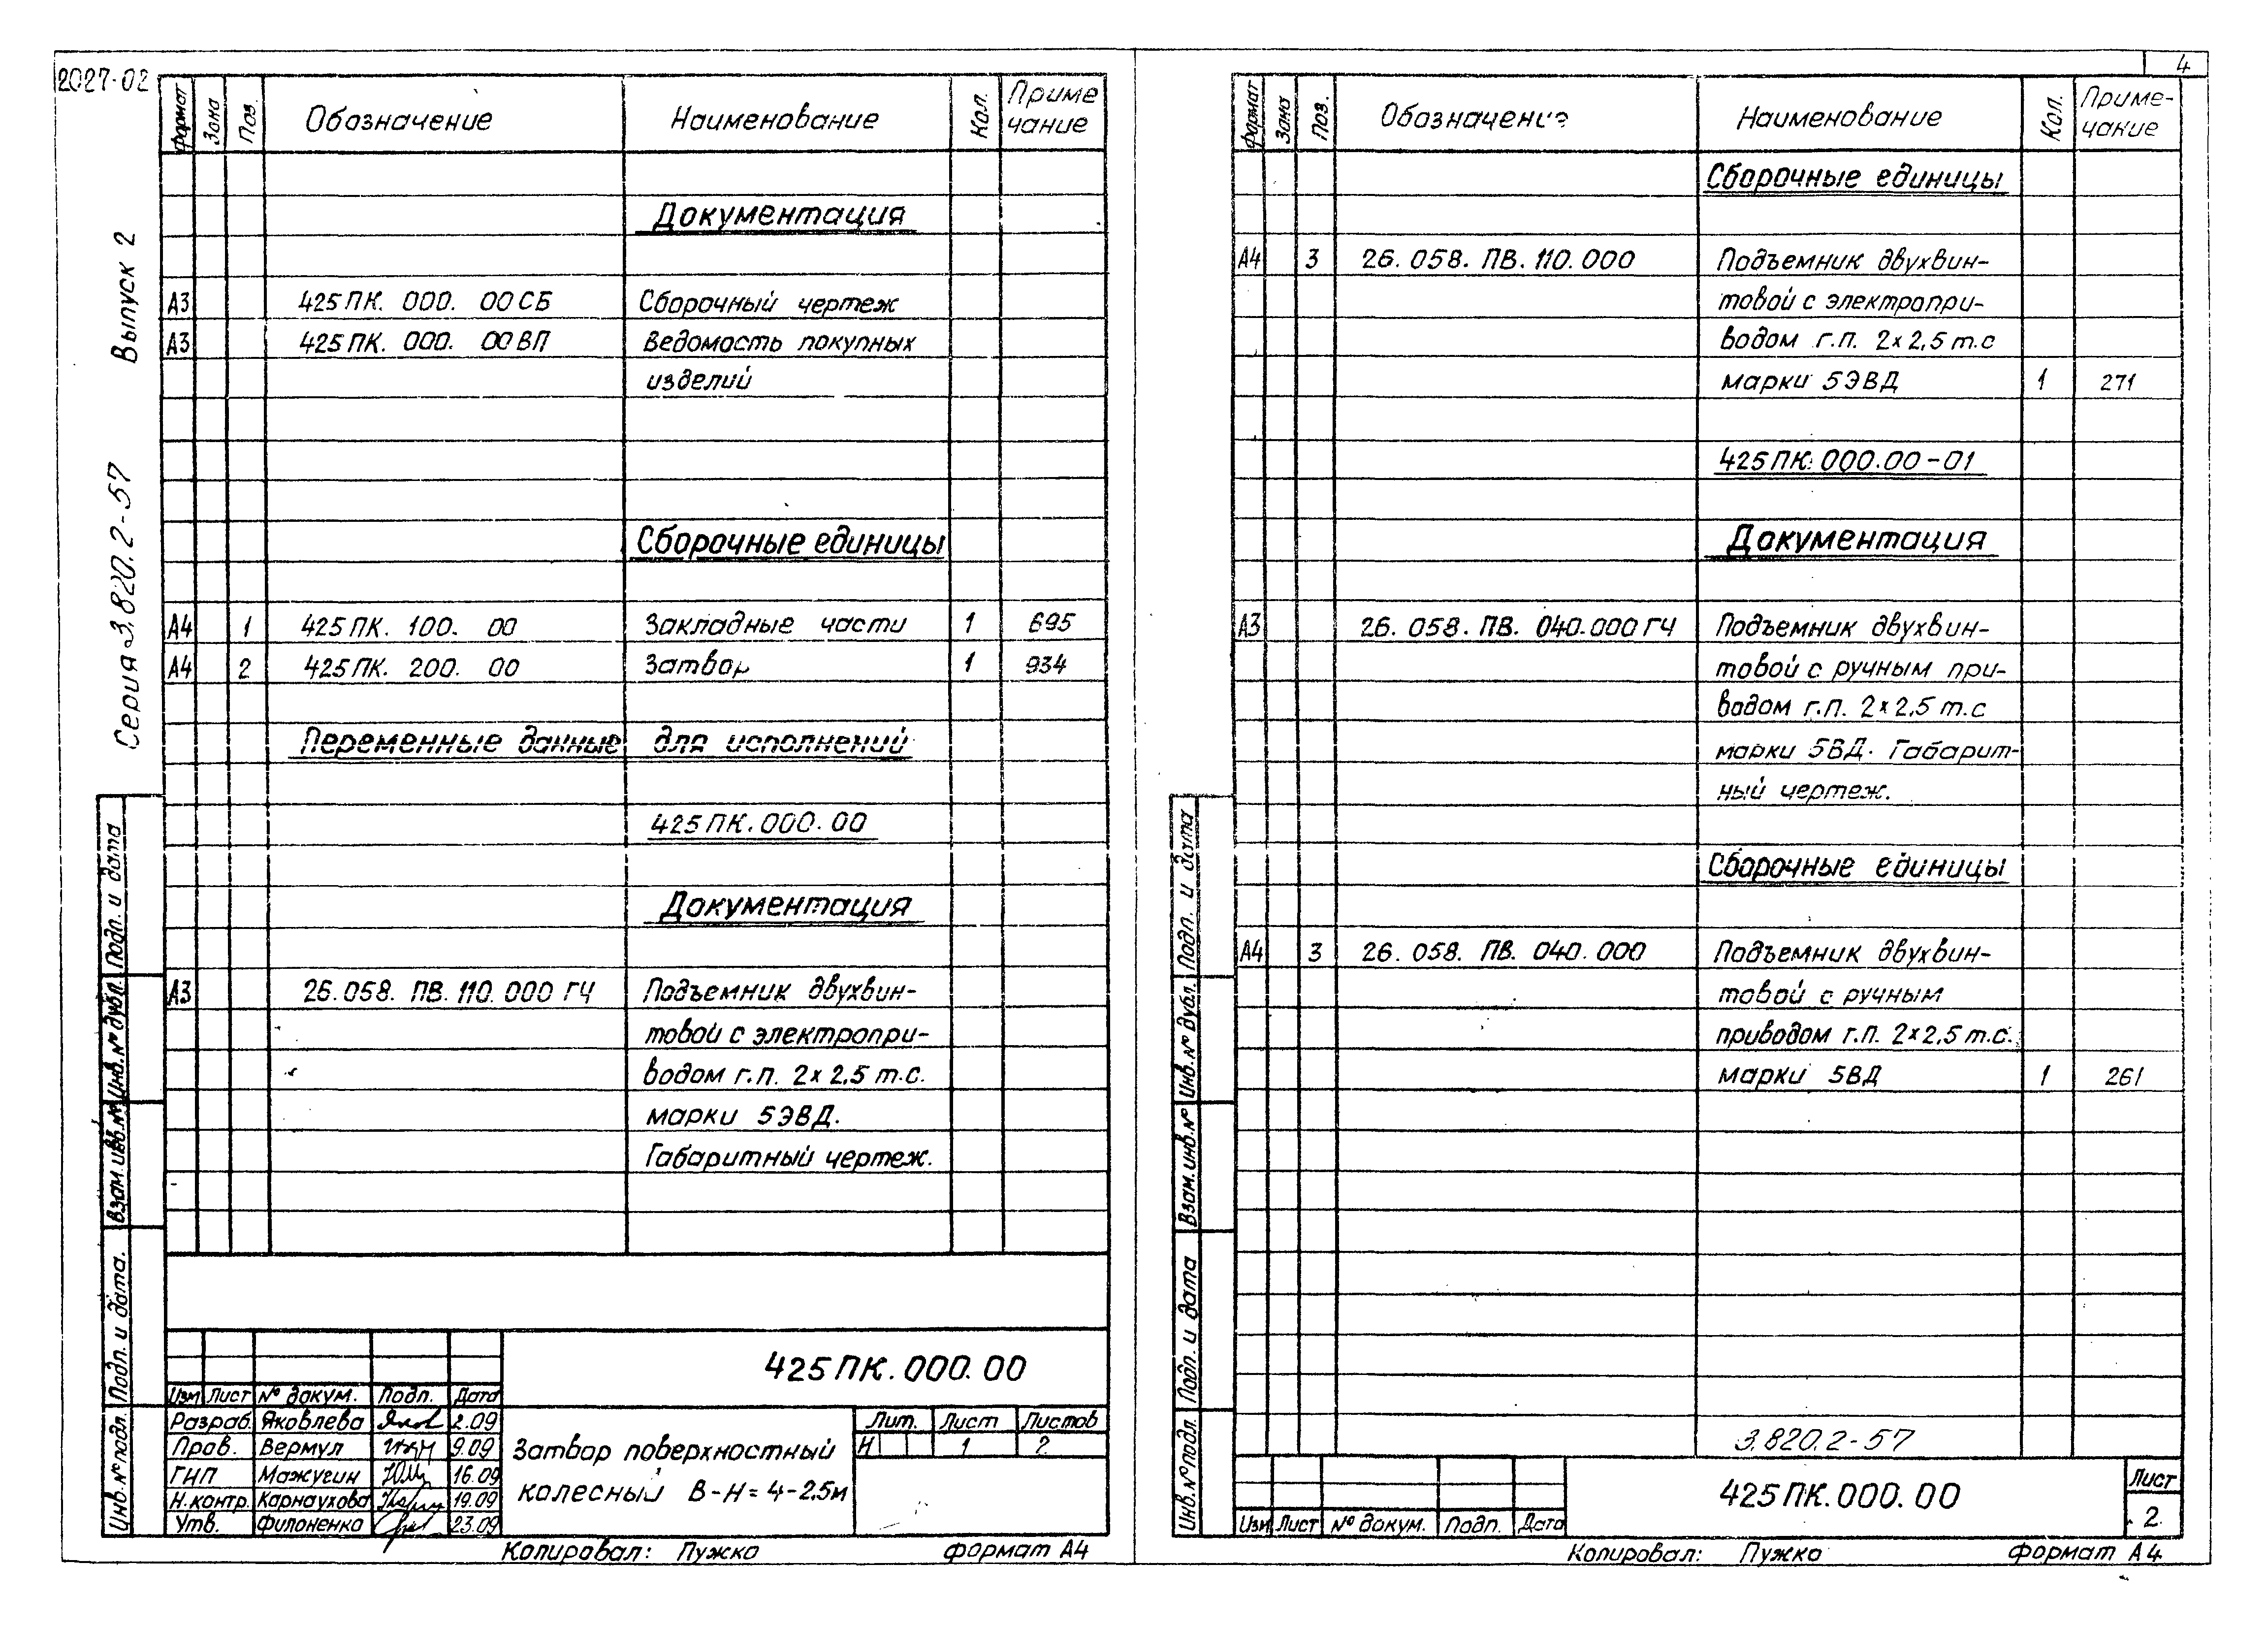 2027-02
Серия 3.820.2-57 Выпуск 2
Формат Зона Поз. Обозначение Наименование Кол. Приме
чание
Документация
А3 425ПК. 000. 00СБ Сборочный чертеж
А3 425ПК. 000. 00ВП Ведомость покупных
изделий
Сборочные единицы
А4 1 425ПК. 100. 00 Закладные части 1 695
А4 2 425ПК. 200. 00 Затвор 1 934
Переменные данные для исполнений
425ПК.000.00
Документация
А3 26.058. ПВ. 110. 000 ГЧ Подъемник двухвин-
товой с электропри-
водом г.п. 2х2,5 т.с.
марки 5ЭВД.
Габаритный чертеж.
Инв.№подл. Подп. и дата. Взам.инв.№ Инв.№дубл. Подп. и дата
425ПК.000.00
Изм Лист № докум. Подп. Дата
Разраб. Яковлева 2.09
Пров. Вермул 9.09
ГИП Мажугин 16.09
Н.контр. Карнаухова 19.09
Утв. Филоненко 23.09
Затвор поверхностный
колесный В-Н=4-2,5м
Лит. Лист Листов
И 1 2
Копировал: Пужко формат А4
4
Формат Зона Поз. Обозначение Наименование Кол. Приме-
чание
Сборочные единицы
А4 3 26. 058. ПВ. 110. 000 Подъемник двухвин-
товой с электропри-
водом г.п. 2х2,5 т.с
марки 5ЭВД 1 271
425ПК.000.00-01
Документация
А3 26. 058. ПВ. 040.000 ГЧ Подъемник двухвин-
товой с ручным при-
водом г.п. 2х2,5 т.с
марки 5ВД. Габарит-
ный чертеж.
Сборочные единицы
А4 3 26. 058. ПВ. 040. 000 Подъемник двухвин-
товой с ручным
приводом г.п. 2х2,5 т.с.
марки 5ВД 1 261
3.820.2-57
Инв.№подл. Подп. и дата Взам.инв.№ Инв.№ дубл. Подп. и дата
425ПК.000.00
Лист
2
Изм Лист № докум. Подп. Дата
Копировал: Пужко формат А4